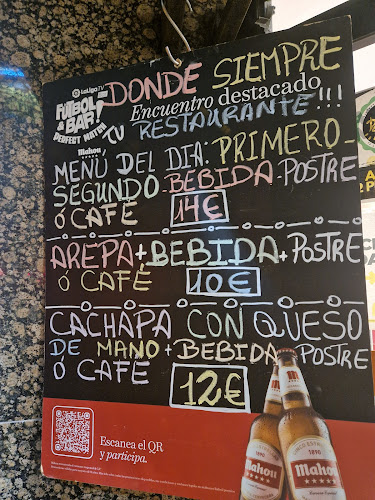 LaLiga TV BAR
FÚTBOL
& BAR!
PERFECT MATCH
Mahou
DONDE SIEMPRE
Encuentro destacado
TU RESTAURANTE!!!
MENÚ DEL DIA: PRIMERO-
SEGUNDO-BEBIDA-POSTRE
Ó CAFÉ 14€
AREPA+BEBIDA+POSTRE
Ó CAFÉ 10€
CACHAPA CON QUESO
DE MANO+BEBIDA+POSTRE
Ó CAFÉ 12€
Escanea el QR
y participa.
1890
Mahou
1890
Mahou